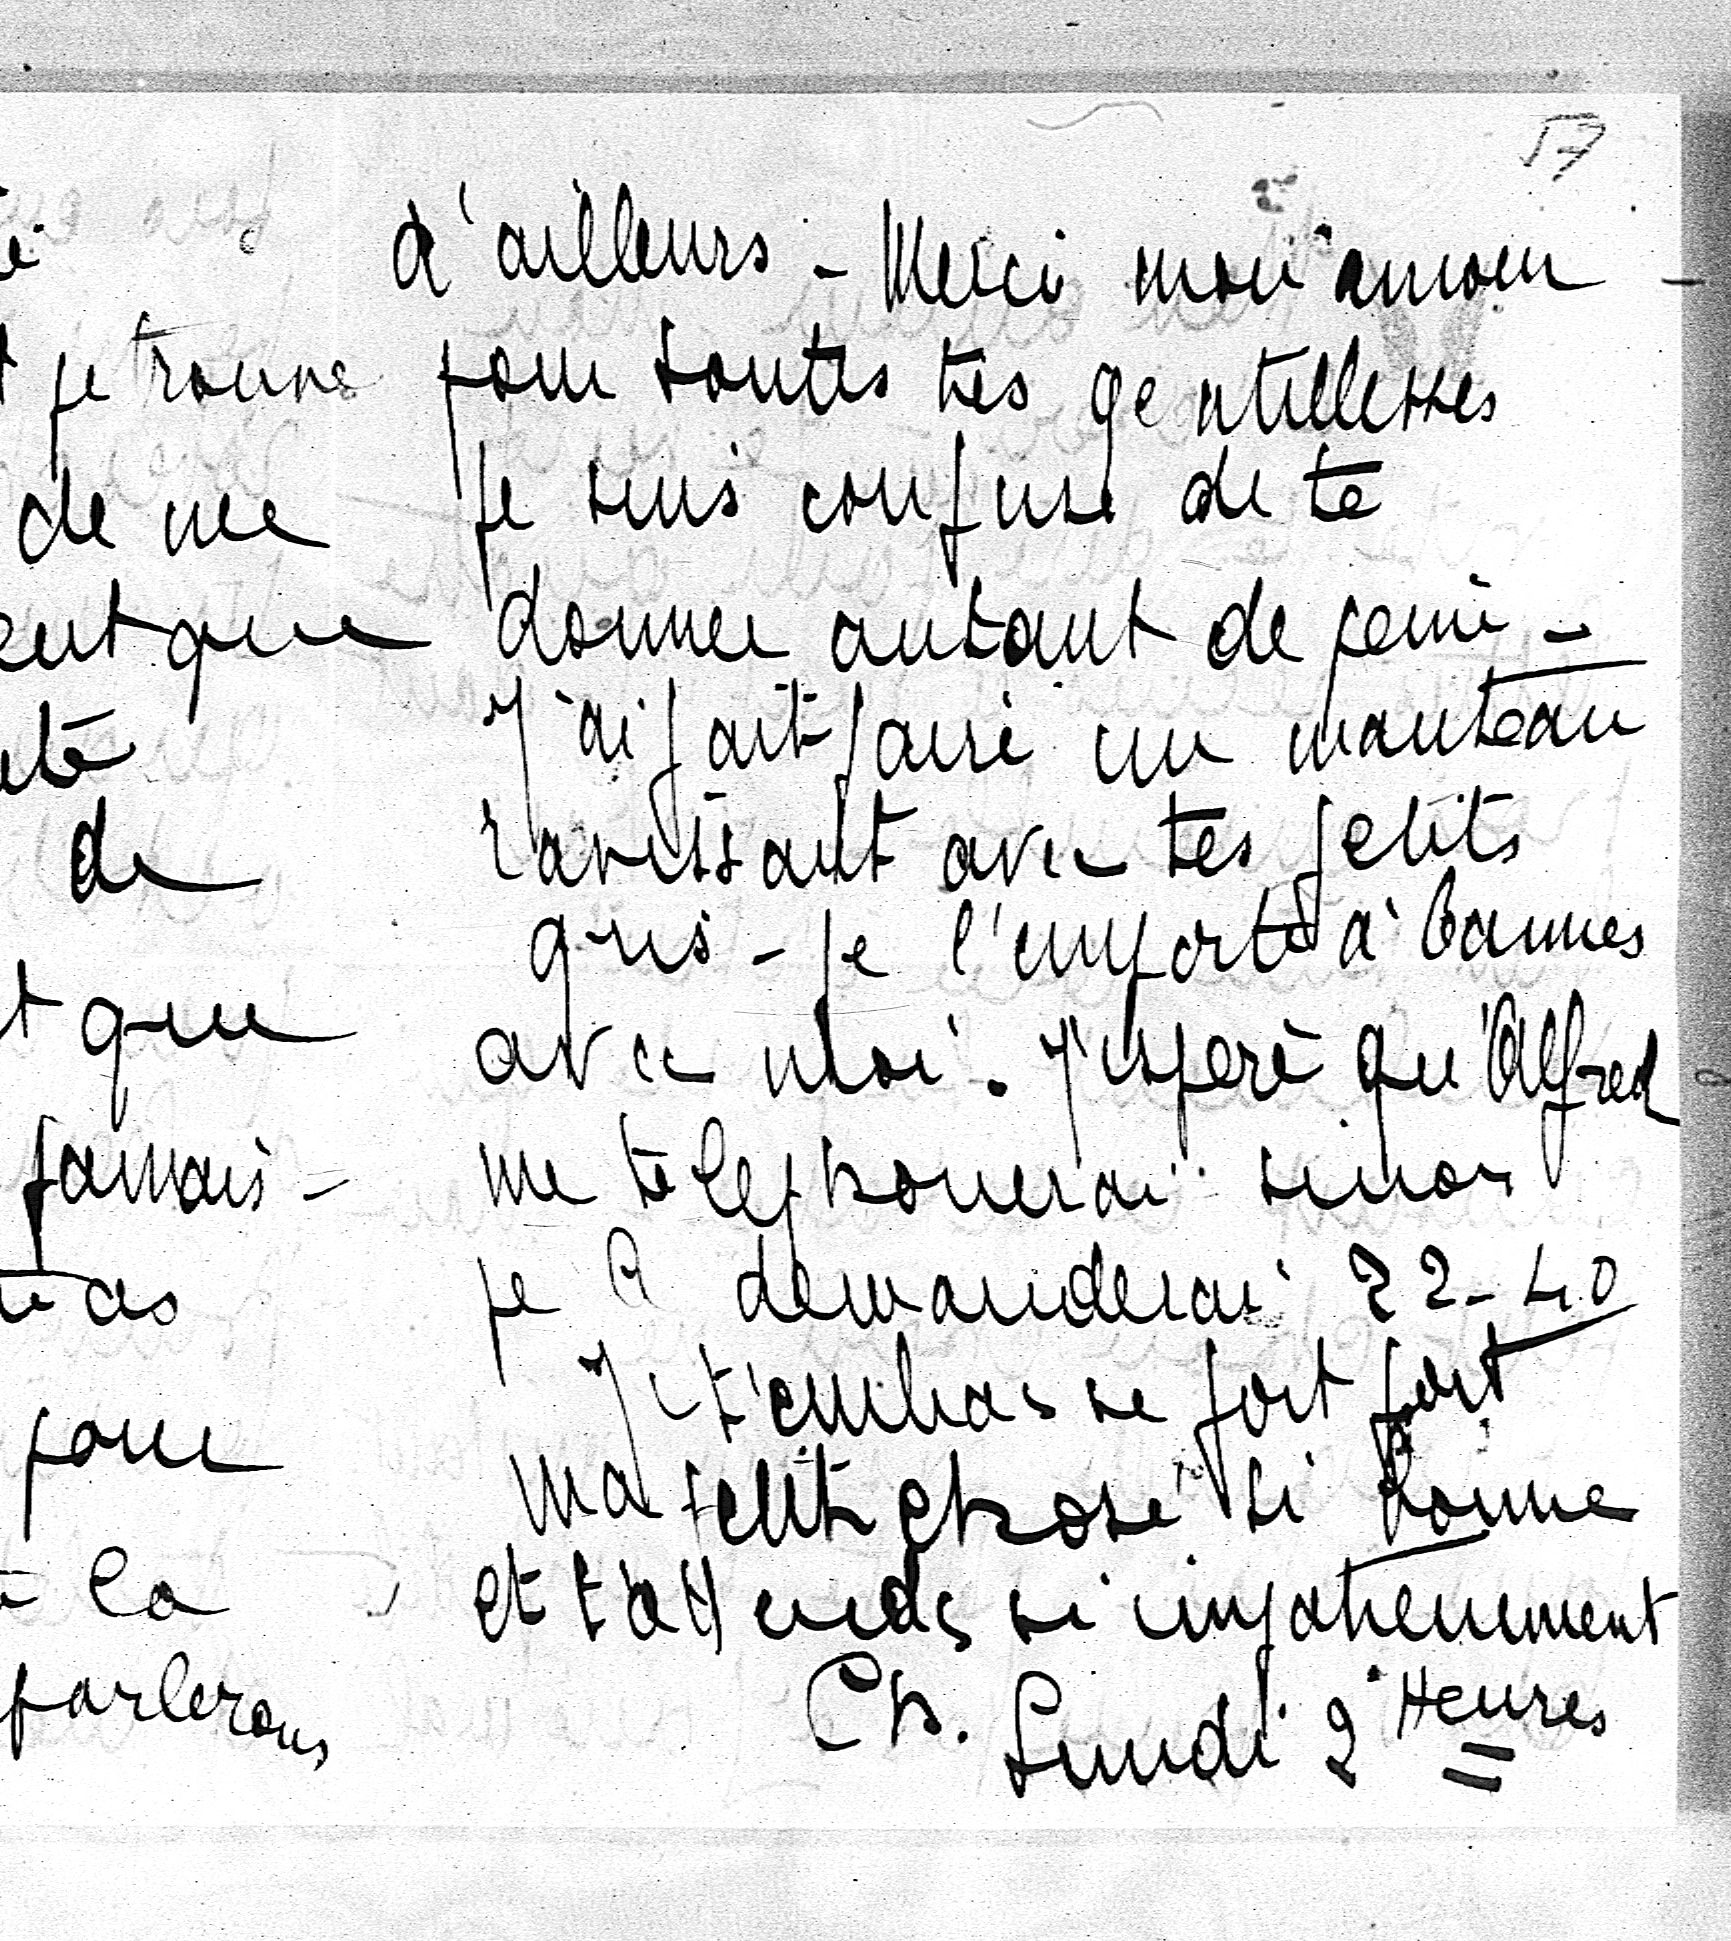 é
je trouve
de me
ent que
uté
de
t que
jamais -
as
pour
la
parlerons
57
d'ailleurs - Merci mon amour -
pour toutes tes gentillesses
je suis confuse de te
donner autant de peine -
J'ai fait faire un manteau
ravissant avec tes petits
gris - je l'emporte à Cannes
avec moi. J'espère qu'Alfred
me téléphonerai sinon
je demanderai 22-40
Je t'embrasse fort fort
ma petite chose si bonne
et t'attends si impatiemment
Ch. Lundi 2 Heures